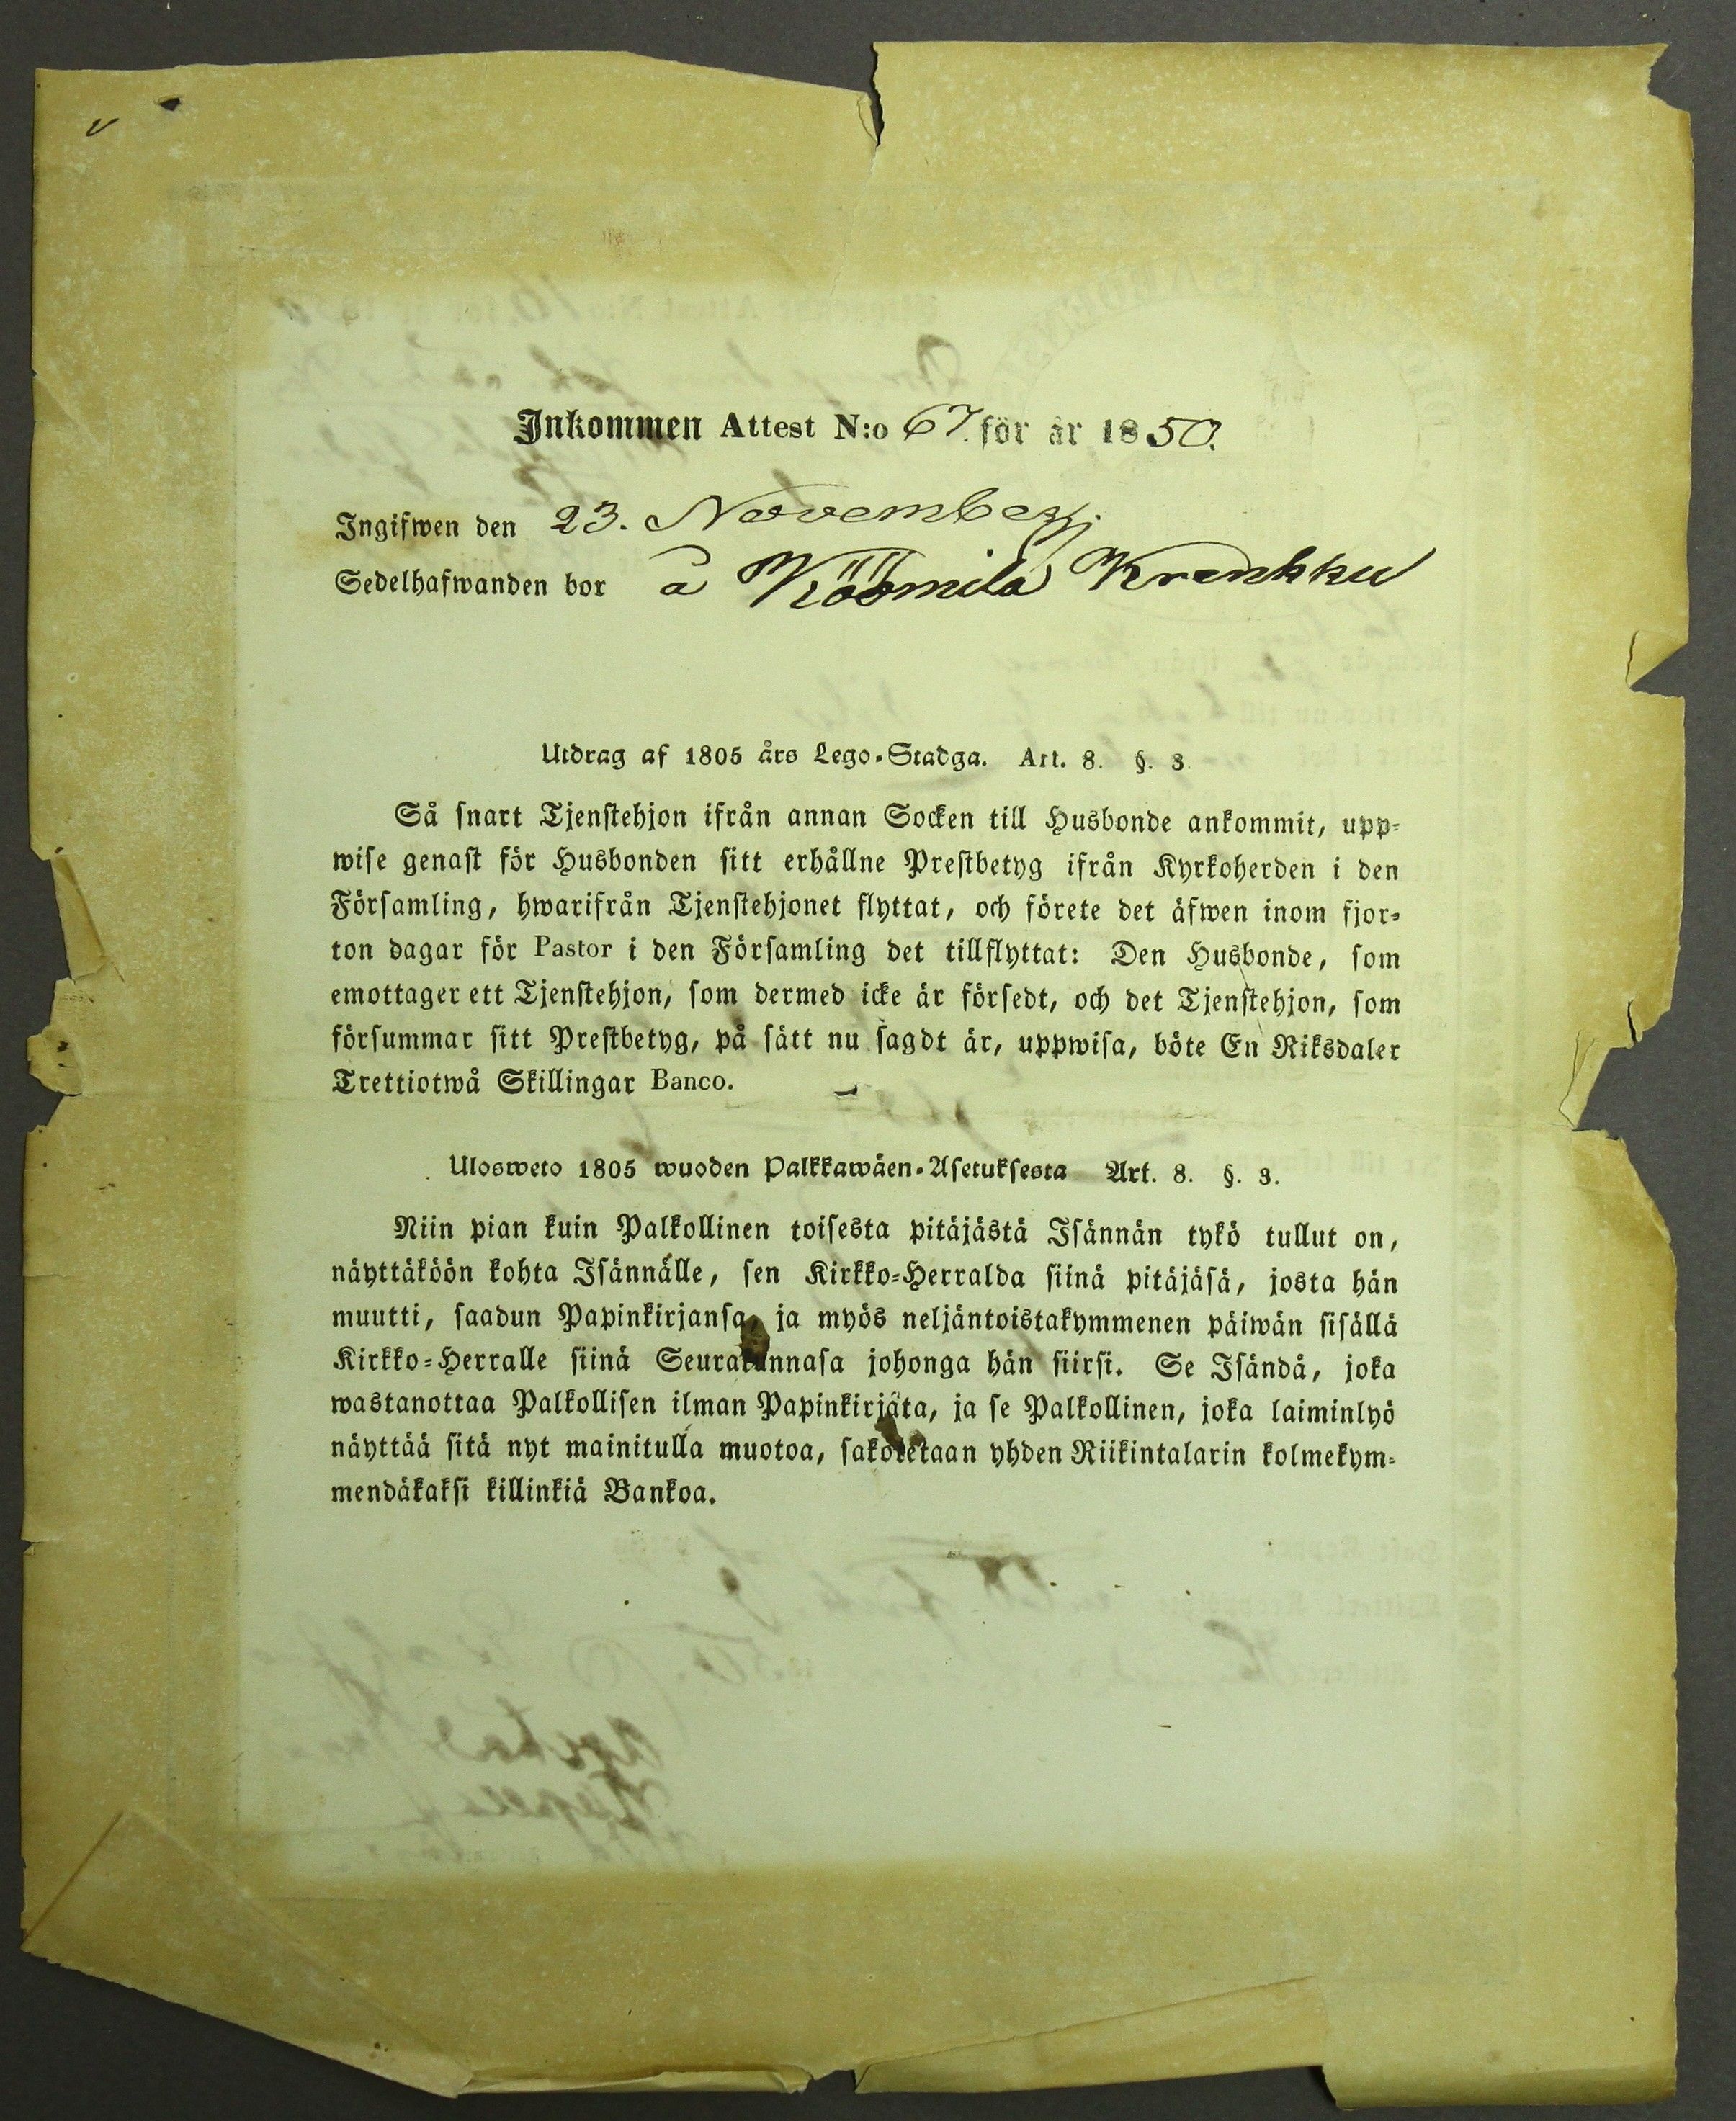 Inkommen Attest N:o 67. för år 1850.
Ingifwen den 23. November
Sedelhafwanden bor å Köömilä Krenkku
Utdrag af 1805 års Lego-Stadga. Art. 8. §. 3.
Så snart Tjenstehjon ifrån annan Socken till Husbonde ankommit, upp-
wise genast för Husbonden sitt erhållne Prestbetyg ifrån Kyrkoherden i den
Församling, hwarifrån Tjenstehjonet flyttat, och förete det äfwen inom fjor-
ton dagar för Pastor i den Församling det tillflyttat: Den Husbonde, som
emottager ett Tjenstehjon, som dermed icke är försedt, och det Tjenstehjon, som
försummar sitt Prestbetyg, på sätt nu sagdt är, uppwisa, böte En Riksdaler
Trettiotwå Skillingar Banco.
Ulosweto 1805 wuoden Palkkawäen-Asetuksesta Art. 8. §. 3.
Niin pian kuin Palkollinen toisesta pitäjästä Isännän tykö tullut on,
näyttäköön kohta Isännälle, sen Kirkko-Herralda siinä pitäjäsä, josta hän
muutti, saadun Papinkirjansa, ja myös neljäntoistakymmenen päiwän sisällä
Kirkko-Herralle siinä Seurakunnasa johonga hän siirsi. Se Isändä, joka
wastanottaa Palkollisen ilman Papinkirjäta, ja se Palkollinen, joka laiminlyö
näyttää sitä nyt mainitulla muotoa, sakotetaan yhden Riikintalarin kolmekym-
mendäkaksi killinkiä Bankoa.